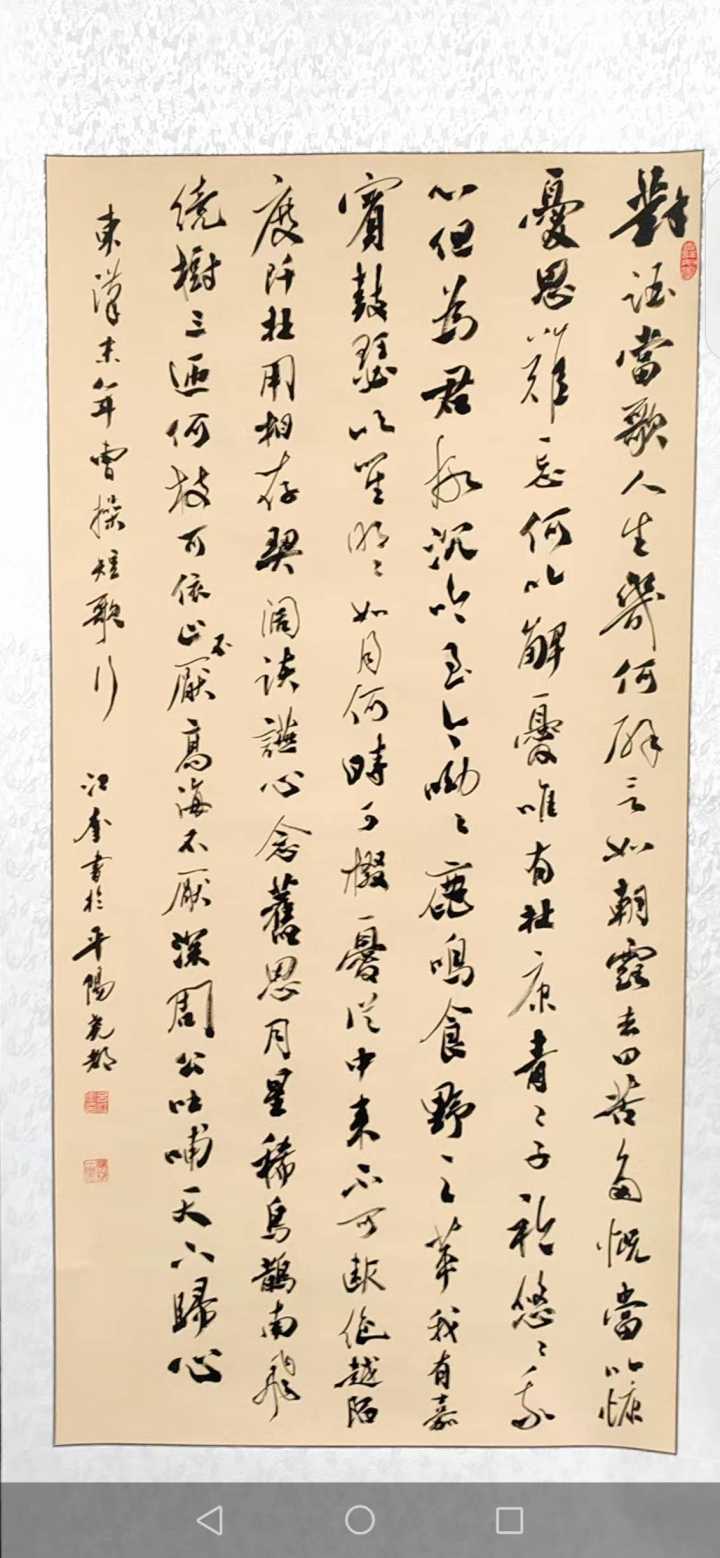 對酒當歌人生幾何譬如朝露去日苦多慨當以慷
憂思難忘何以解憂唯有杜康青々子衿悠々我
心但為君故沉吟至今呦々鹿鳴食野之苹我有嘉
賓鼓瑟吹笙明々如月何時可掇憂從中來不可斷絕越陌
度阡枉用相存契闊談讌心念舊恩月星稀烏鵲南飛
繞樹三匝何枝可依山不厭高海不厭深周公吐哺天下歸心
東漢末年曹操短歌行 江奎書於平陽堯都